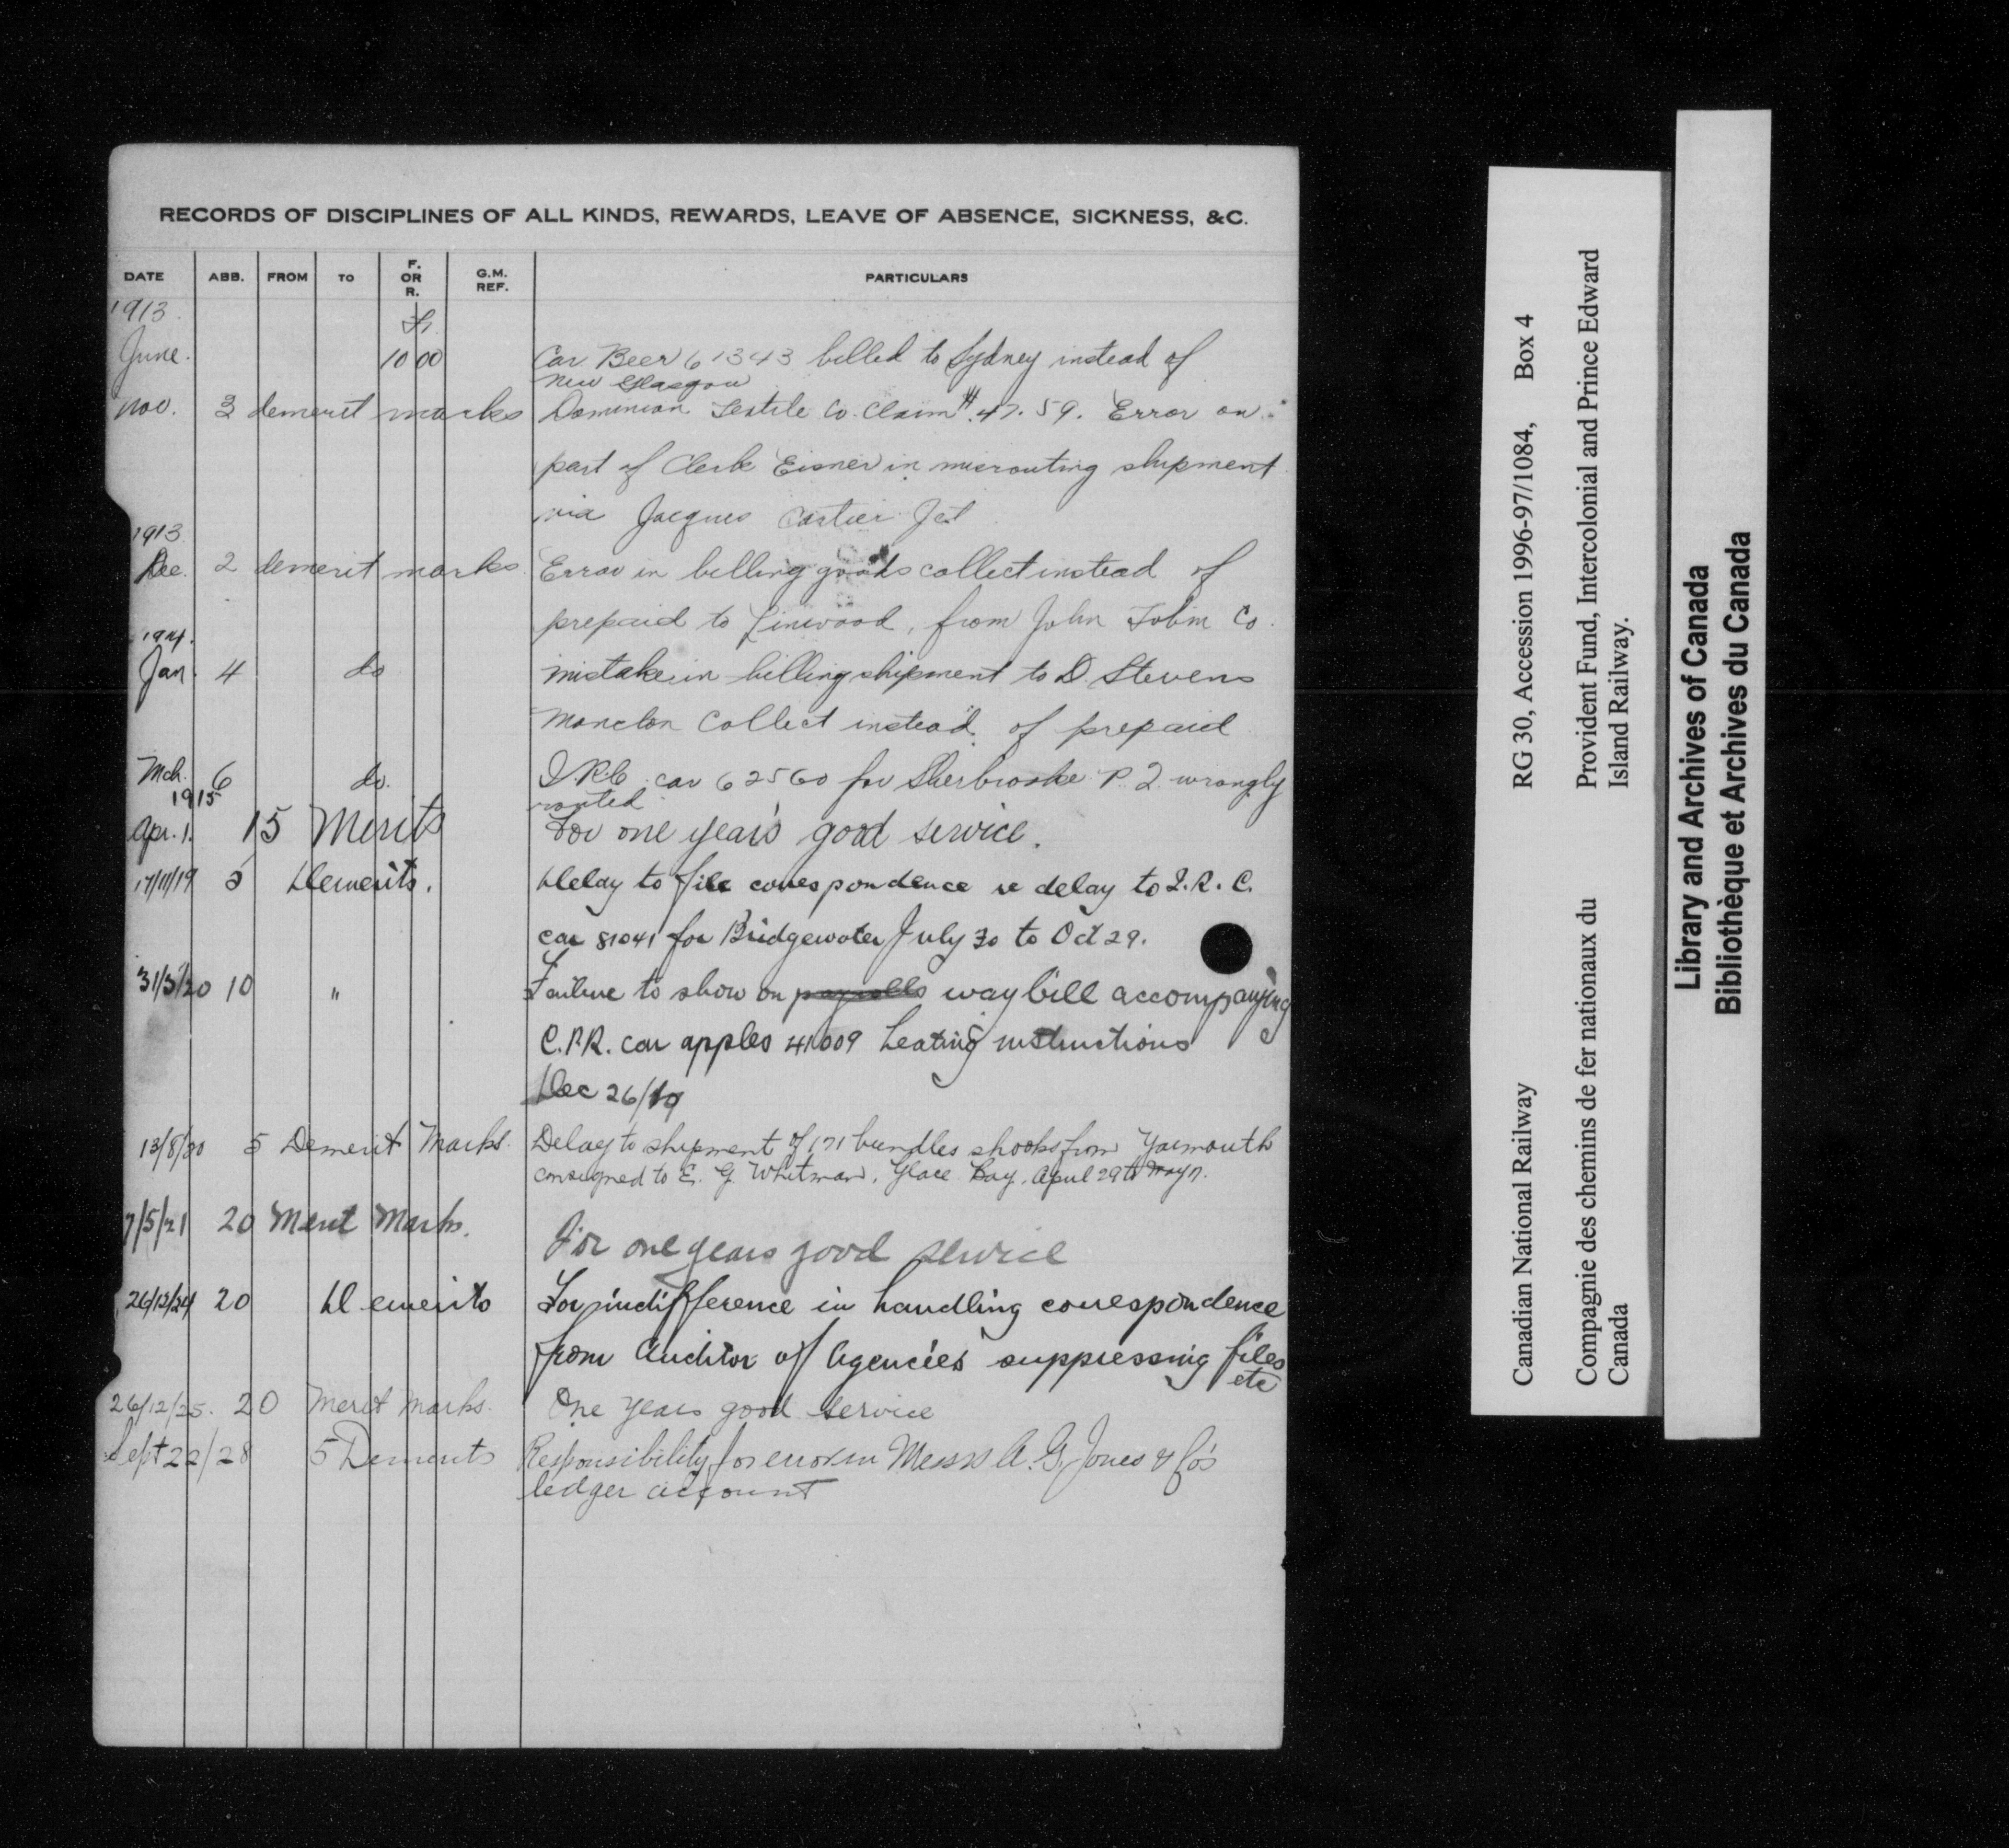 RECORDS OF DISCIPLINES OF ALL KINDS, REWARDS, LEAVE OF ABSENCE, SICKNESS, &C.
DATE ABB. FROM TO F. OR R. G.M. REF. PARTICULARS
1913
June. 10 00 Car Beer 61343 billed to Sydney instead of
New Glasgow
Nov. 3 demerit marks Dominion Textile Co. Claim #47.59. Error on
part of Clerk Eisner in misrouting shipment
via Jacques Cartier Jct
1913
Dec. 2 demerit marks. Error in billing goods collect instead of
prepaid to Linwood, from John Tobin Co.
1914.
Jan. 4 do mistake in billing shipment to D Stevens
Moncton Collect instead of prepaid
Mch. 6 do. I.R.C. car 62560 for Sherbrooke P.Q. wrongly
routed
1915
Apr. 1. 15 Merits For one year's good service.
17/11/19 5 Demerits. Delay to file correspondence re delay to I.R.C.
car 81041 for Bridgewater July 30 to Oct 29.
31/3/20 10 " Failure to show on payrolls way bill accompanying
C.P.R. car apples 41009 heating instructions
Dec 26/19
13/8/20 5 Demerit Marks. Delay to shipment of 171 bundles shooks from Yarmouth
consigned to E. G. Whitman, Glace Bay, April 29 to May 7.
7/5/21 20 Merit Marks. For one years good service
26/12/24 20 Demerits For indifference in handling correspondence
from Auditor of Agencies suppressing files
etc
26/12/25. 20 Merit Marks. One years good service
Sept 22/28 5 Demerits Responsibility for error in Messrs A. G. Jones & Co's
ledger account
Canadian National Railway RG 30, Accession 1996-97/1084, Box 4
Compagnie des chemins de fer nationaux du Provident Fund, Intercolonial and Prince Edward
Canada Island Railway.
Library and Archives of Canada
Bibliothèque et Archives du Canada